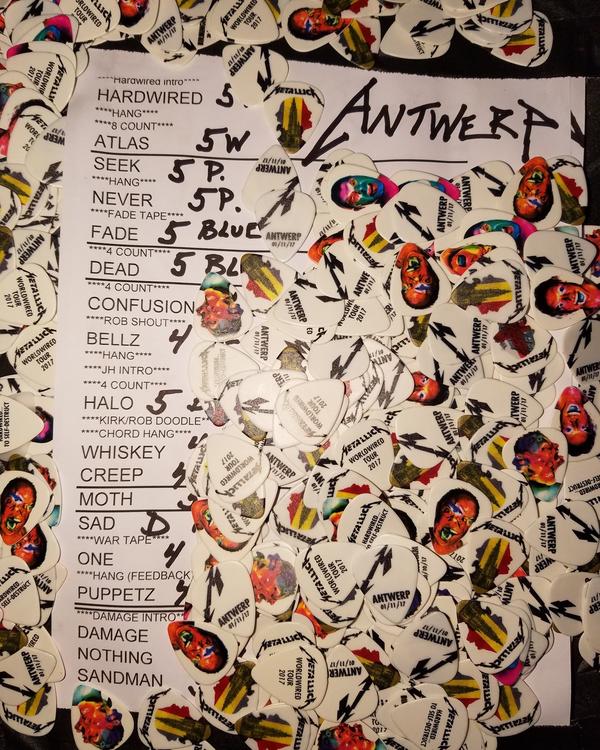 ****Hardwired Intro****
HARDWIRED 5
ANTWERP
****HANG****
****8 COUNT****
ATLAS 5W
SEEK 5 P.
****HANG****
NEVER 5P.
****FADE TAPE****
FADE 5 BLUE
****4 COUNT****
DEAD 5 BL
****4 COUNT****
CONFUSION
****ROB SHOUT****
BELLZ 4
****HANG****
****JH INTRO****
****4 COUNT****
HALO 5
****KIRK/ROB DOODLE**
****CHORD HANG****
WHISKEY
CREEP
MOTH
SAD D
****WAR TAPE****
ONE 4
****HANG (FEEDBACK
PUPPETZ
****DAMAGE INTRO**
DAMAGE
NOTHING
SANDMAN
METALLICA
WORLDWIRED
TOUR
2017
ANTWERP
01/11/17
HARDWIRED
TO SELF-DESTRUCT